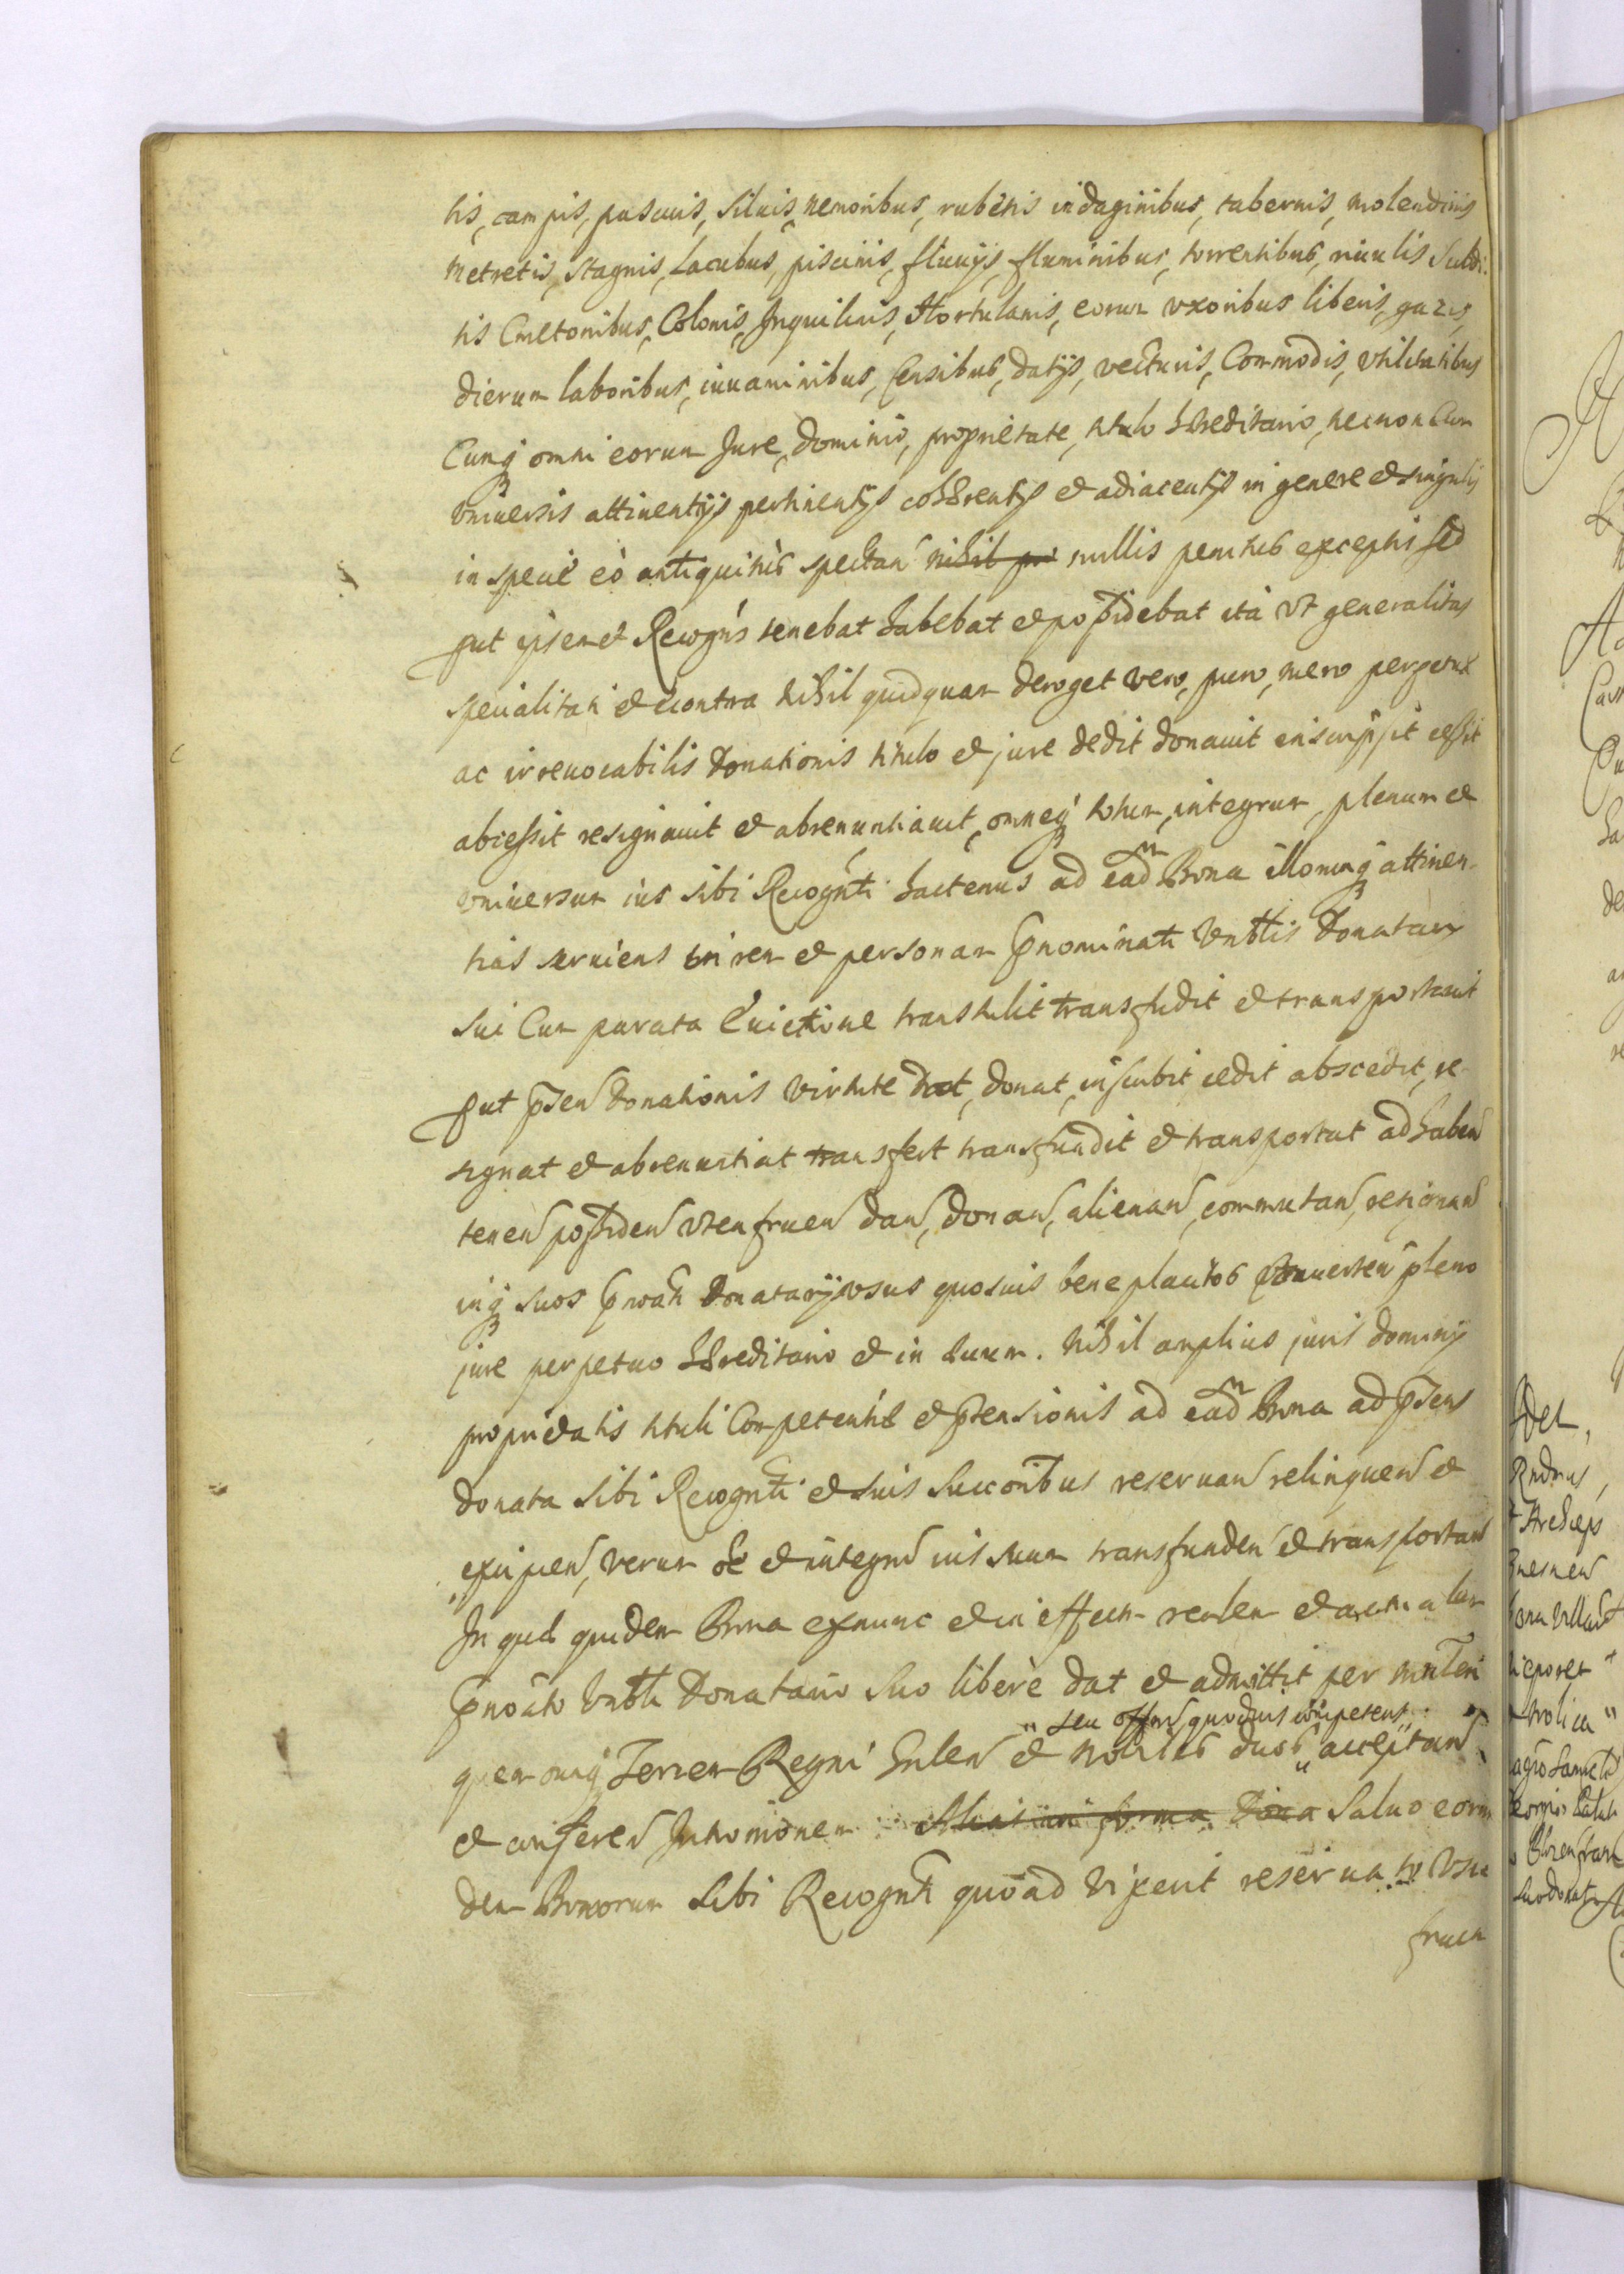 tis, campis, pascuis, siluis, nemoribus, rubetis indaginibus, tabernis, molendinis
metretis, stagnis, Lacubus, piscinis, fluuijs, fluminibus, torrentibus, riuulis Subdi-
tis Cmetonibus, Colonis, Inquilinis, Hortulanis, eorum vxoribus liberis, gazis,
dierum laboribus, iuuaminibus, Censibus, datijs, vecturis, Commodis, vtilitatibus
Cunq3 omni eorum Jure, dominio, proprietate, titulo hæreditario, necnon Cum
vniuersis attinentijs pertinentijs cohærentijs et adiacentijs in genere et singulis
in specie eò antiquitùs spectan nihil pr nullis penitus exceptis sed
put ipsemet Recogns tenebat habebat et possidebat ità vt generalitas
specialitati et econtra nihil quidquam deroget vero, puro, mero perpetuæ
ac irreuocabilis Donationis titulo et jure dedit donauit inscripsit cessit
abcessit resignauit et abrenuntiauit, omneq3 totum, integrum, plenum et
vniuersum ius sibi Recognti hactenus ad ead͠m Bona illorumq3 attinen-
tias seruiens in rem et personam pnominati Vnbtlis Donatarij
sui Cum parata Euictione transtulit transfudit et transportauit
put pnsen Donationis virtute dat, donat, inscribit cedit abscedit, re-
signat et abrenuntiat transfert transfundit et transportat ad haben
tenen possiden vten fruen dan, donan, alienan, commutan, resignan
inq3 suos pnoati Donatarij vsus quosuis beneplacitos Conuerten pleno
jure perpetuo hæreditario et in æuum. Nihil amplius juris dominij
proprietatis tituli Competentiæ et prtensionis ad ead͠m Bona ad pnsens
donata sibi Recognti et suis Succoribus reseruan relinquen et
excipien, verum oe et integru ius suum transfunden et transportan
In quæ quidem Bona exnunc et in effectu realem et actualem
pnoato Vnbli Donatario suo liberè dat et admittit per mnlem
seu offm quoduis competens
quemcunq3 Terrem Regni Gnlem et Nobiles duos acceptan
et conferen Intromonem Salvo eorun
dem Bonorum Sibi Recognti quoad vixerit reseruato Vsu
fructu